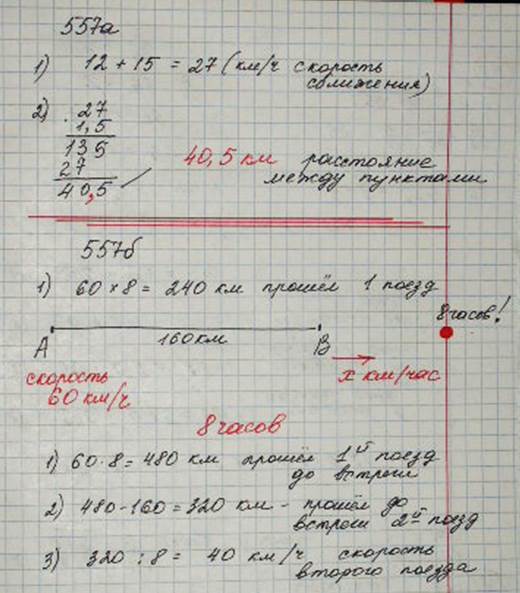 557а
1) 12 + 15 = 27 (км/ч скорость
сближения)
2) 27
1,5
135
27
40,5
40,5 км расстояние
между пунктами
557б
1) 60 × 8 = 240 км прошёл 1 поезд
8 часов!
А 160 км В
скорость
60 км/ч
х км/час
8 часов
1) 60 · 8 = 480 км прошёл 1й поезд
до встречи
2) 480 - 160 = 320 км - прошёл до
встречи 2й поезд
3) 320 : 8 = 40 км/ч скорость
второго поезда